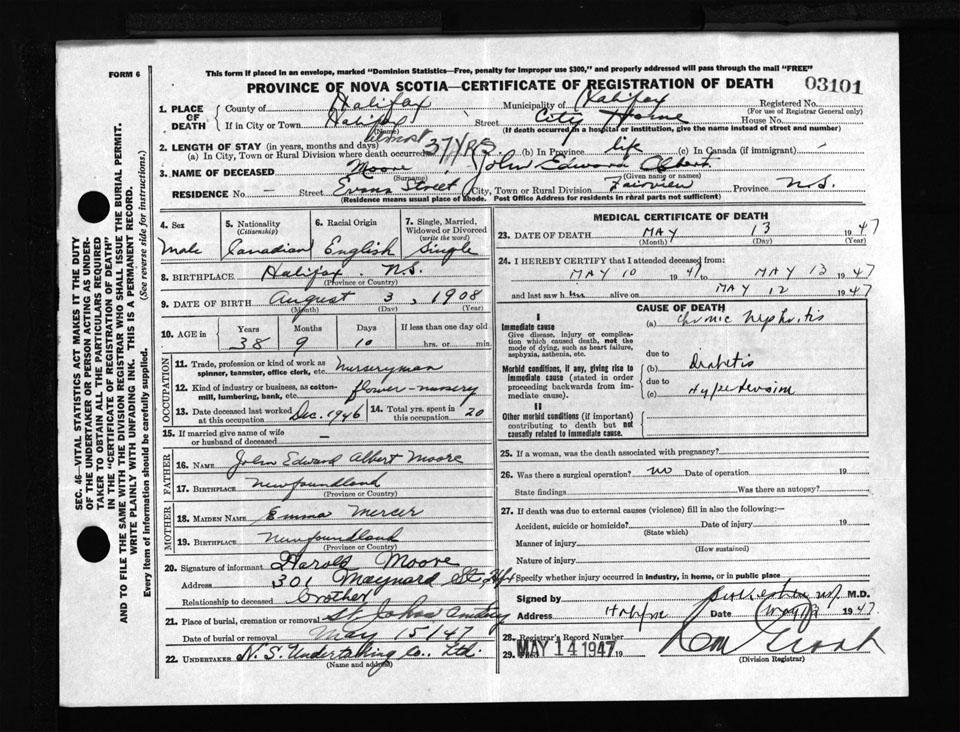 FORM 6
This form if placed in an envelope, marked "Dominion Statistics—Free, penalty for improper use $300," and properly addressed will pass through the mail "FREE"
PROVINCE OF NOVA SCOTIA—CERTIFICATE OF REGISTRATION OF DEATH
03101
SEC. 46—VITAL STATISTICS ACT MAKES IT THE DUTY
OF THE UNDERTAKER OR PERSON ACTING AS UNDER-
TAKER TO OBTAIN ALL THE PARTICULARS REQUIRED
IN THE "CERTIFICATE OF REGISTRATION OF DEATH"
AND TO FILE THE SAME WITH THE DIVISION REGISTRAR WHO SHALL ISSUE THE BURIAL PERMIT.
WRITE PLAINLY WITH UNFADING INK. THIS IS A PERMANENT RECORD.
Every item of information should be carefully supplied. (See reverse side for instructions.)
1. PLACE OF DEATH
County of Halifax Municipality of Halifax Registered No.
(For use of Registrar General only)
If in City or Town Halifax Street City Home House No.
(Name) (If death occurred in a hospital or institution, give the name instead of street and number)
2. LENGTH OF STAY (in years, months and days)
(a) In City, Town or Rural Division where death occurred almost 37 YRS. (b) In Province life (c) In Canada (if immigrant)
3. NAME OF DECEASED Moore John Edward Albert
(Surname) (Given name or names)
RESIDENCE No. — Street Evans Street City, Town or Rural Division Fairview Province N.S.
(Residence means usual place of abode. Post Office Address for residents in rural parts not sufficient)
4. Sex Male
5. Nationality (Citizenship) Canadian
6. Racial Origin English
7. Single, Married, Widowed or Divorced (write the word) Single
8. BIRTHPLACE Halifax N.S.
(Province or Country)
9. DATE OF BIRTH August 3, 1908
(Month) (Day) (Year)
10. AGE in Years Months Days If less than one day old
38 9 10 hrs. or min.
OCCUPATION
11. Trade, profession or kind of work as spinner, teamster, office clerk, etc. Nurseryman
12. Kind of industry or business, as cotton-mill, lumbering, bank, etc. flower-nursery
13. Date deceased last worked at this occupation Dec. 1946
14. Total yrs. spent in this occupation 20
15. If married give name of wife or husband of deceased —
FATHER
16. NAME John Edward Albert Moore
17. BIRTHPLACE Newfoundland
(Province or Country)
MOTHER
18. MAIDEN NAME Emma Mercer
19. BIRTHPLACE Newfoundland
(Province or Country)
20. Signature of informant Harold Moore
Address 301 Maynard St. Hfx
Relationship to deceased brother
21. Place of burial, cremation or removal St. Johns
Date of burial or removal May 15/47
22. UNDERTAKER N.S. Undertaking Co., Ltd.
(Name and address)
MEDICAL CERTIFICATE OF DEATH
23. DATE OF DEATH MAY 13 1947
(Month) (Day) (Year)
24. I HEREBY CERTIFY that I attended deceased from:
MAY 10 1947 to MAY 13 1947
and last saw him alive on MAY 12 1947
CAUSE OF DEATH
I
Immediate cause
Give disease, injury or complication which caused death, not the mode of dying, such as heart failure, asphyxia, asthenia, etc.
(a) Chronic Nephritis
due to
Morbid conditions, if any, giving rise to immediate cause (stated in order proceeding backwards from immediate cause).
(b) Diabetis
due to
(c) Hypertension
II
Other morbid conditions (if important) contributing to death but not causally related to immediate cause.
25. If a woman, was the death associated with pregnancy?
26. Was there a surgical operation? NO Date of operation 19
State findings Was there an autopsy?
27. If death was due to external causes (violence) fill in also the following:—
Accident, suicide or homicide? Date of injury 19
(State which)
Manner of injury
(How sustained)
Nature of injury
Specify whether injury occurred in industry, in home, or in public place
Signed by M.D.
Address Halifax Date May 1947
28. Registrar's Record Number
29. Filed MAY 14 1947 19
(Division Registrar)